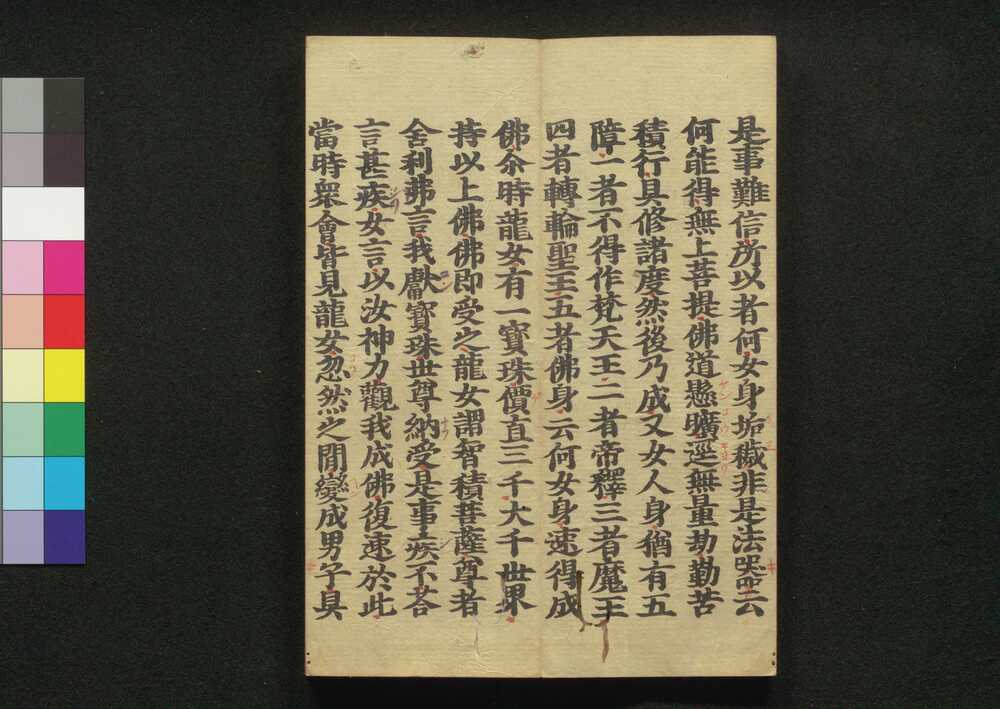 是事難信所以者何女身垢穢非是法器云
何能得無上菩提佛道懸曠逕無量劫勤苦
積行具修諸度然後乃成又女人身猶有五
障一者不得作梵天王二者帝釋三者魔王
四者轉輪聖王五者佛身云何女身速得成
佛尒時龍女有一寶珠價直三千大千世界
持以上佛佛即受之龍女謂智積菩薩尊者
舍利弗言我獻寶珠世尊納受是事疾不答
言甚疾女言以汝神力觀我成佛復速於此
當時衆會皆見龍女忽然之間變成男子具